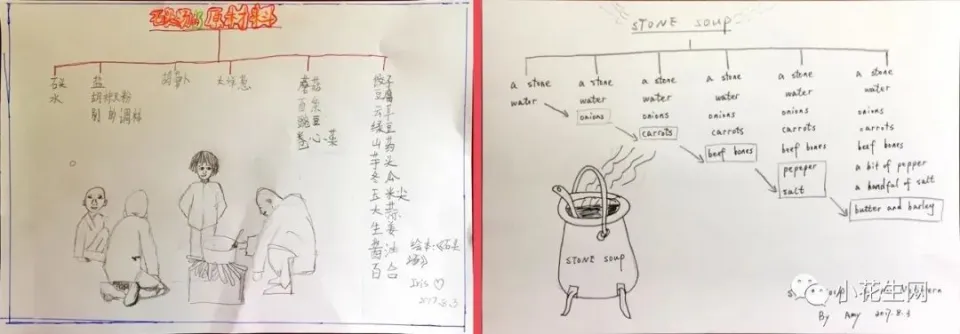 石头汤的原材料
石头
水
盐
胡椒粉
别的调料
胡萝卜
大洋葱
蘑菇
豌豆
卷心菜
豆腐
绿豆
山药
芋头
冬瓜
大蒜
生姜
酱油
百合
绘本《石头汤》
Iris
2017.8.3
STONE SOUP
a stone
water
a stone
water
onions
a stone
water
onions
carrots
a stone
water
onions
carrots
beef bones
a stone
water
onions
carrots
beef bones
pepeper
salt
a stone
water
onions
carrots
beef bones
a bit of pepper
a handful of salt
butter and barley
STONE SOUP
小花生网
By Amy 2017.8.3